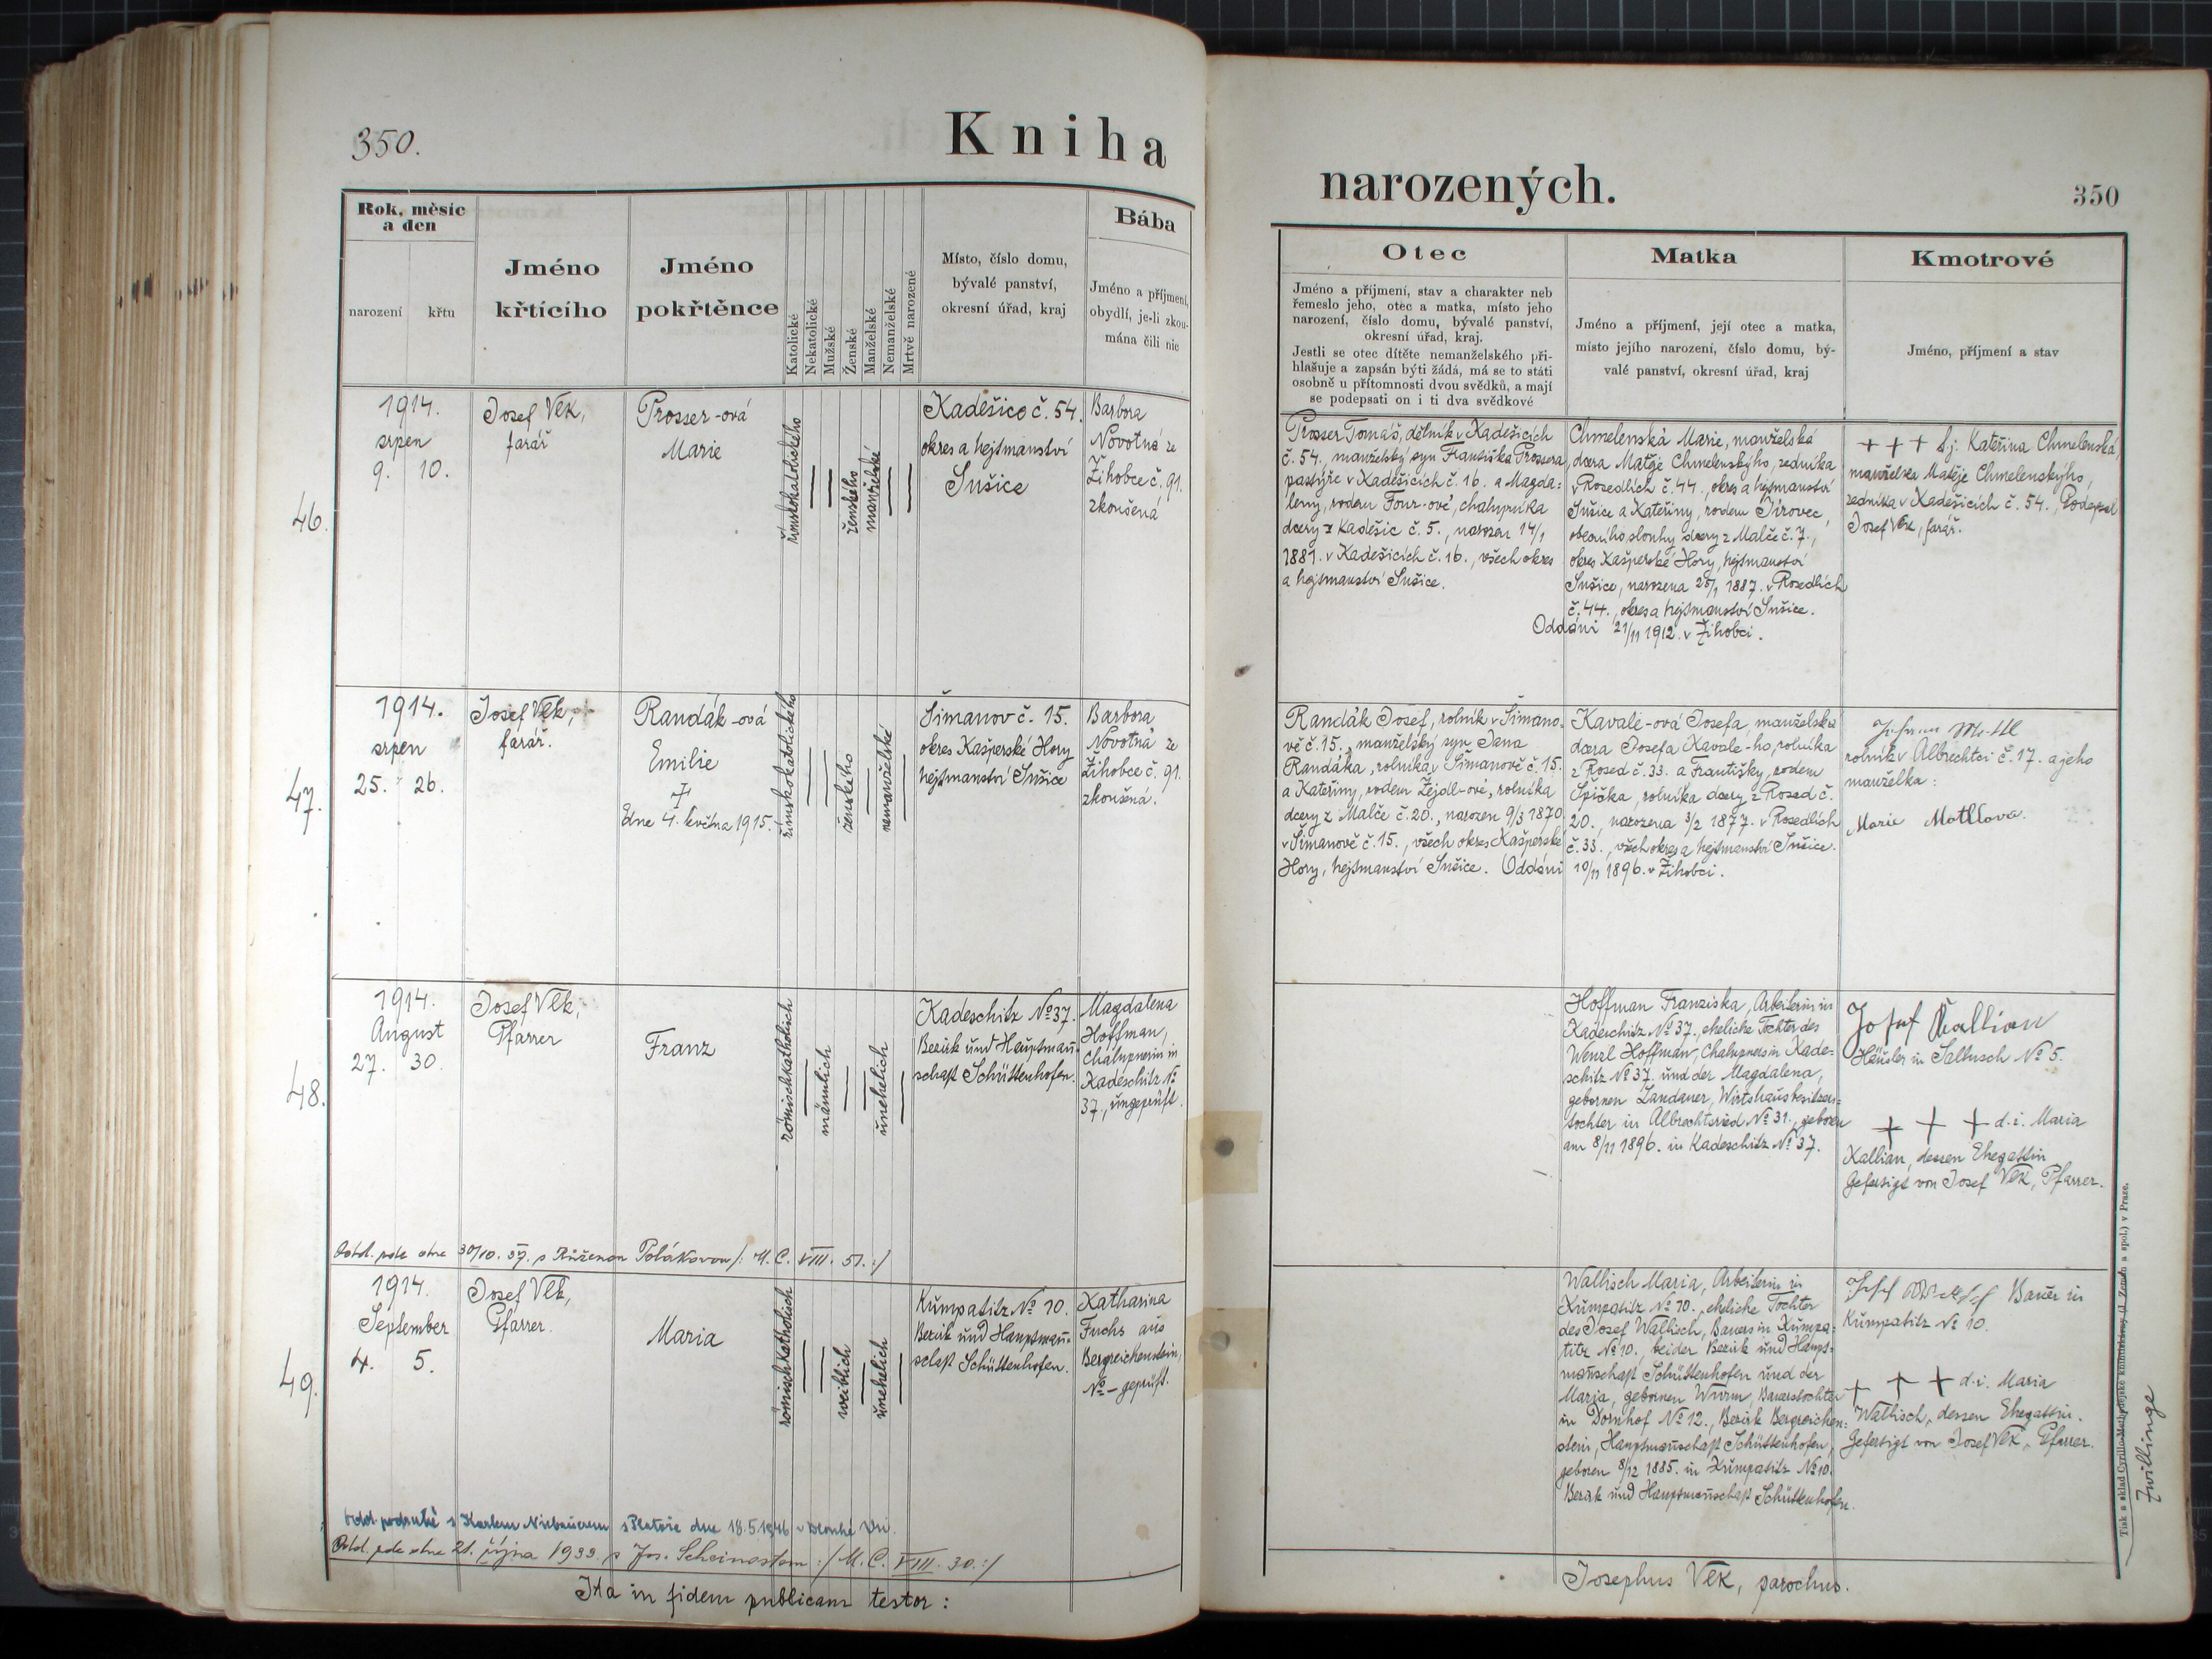 350.
Kniha
narozených.
350
Rok, měsíc
a den
narození
křtu
Jméno
křtícího
Jméno
pokřtěnce
Katolické
Nekatolické
Mužské
Ženské
Manželské
Nemanželské
Mrtvě narozené
Místo, číslo domu,
bývalé panství,
okresní úřad, kraj
Bába
Jméno a příjmení,
obydlí, je-li zkou-
mána čili nic
Otec
Jméno a příjmení, stav a charakter neb
řemeslo jeho, otec a matka, místo jeho
narození, číslo domu, bývalé panství,
okresní úřad, kraj.
Jestli se otec dítěte nemanželského při-
hlašuje a zapsán býti žádá, má se to státi
osobně u přítomnosti dvou svědků, a mají
se podepsati on i ti dva svědkové
Matka
Jméno a příjmení, její otec a matka,
místo jejího narození, číslo domu, bý-
valé panství, okresní úřad, kraj
Kmotrové
Jméno, příjmení a stav
46.
1914.
srpen
9. 10.
Josef Vlk,
farář
Prosser-ová
Marie
římskokatolického
ženského
manželské
Kadešice č. 54.
okres a hejtmanství
Sušice
Barbora
Novotná ze
Žihobce č. 91.
zkoušená
Prosser Tomáš, dělník v Kadešicích
č. 54, manželský syn Františka Prossera,
pastýře v Kadešicích č. 16. a Magda-
leny, rodem Four-ové, chalupníka
dcery z Kadešic č. 5., narozen 14/1
1881. v Kadešicích č. 16., všech okres
a hejtmanství Sušice.
Chmelenská Marie, manželská
dcera Matěje Chmelenskýho, zedníka
v Rosedlích č. 44., okres a hejtmanství
Sušice a Kateřiny, rodem Jírovec,
obecního slouhy dcery z Malče č. 7.,
okres Kašperské Hory, hejtmanství
Sušice, narozena 25/1 1887. v Rosedlích
č. 44., okres a hejtmanství Sušice.
Oddáni 21/11 1912. v Žihobci.
+ + + t.j. Kateřina Chmelenská,
manželka Matěje Chmelenskýho,
zedníka v Kadešicích č. 54., Podepsal
Josef Vlk, farář.
47.
1914.
srpen
25. 26.
Josef Vlk,
farář.
Randák-ová
Emilie
+
dne 4. května 1915.
římskokatolického
ženského
nemanželské
Šimanov č. 15.
okres Kašperské Hory
hejtmanství Sušice
Barbora
Novotná ze
Žihobce č. 91.
zkoušená.
Randák Josef, rolník v Šimano-
vě č. 15., manželský syn Jana
Randáka, rolníka v Šimanově č. 15.
a Kateřiny, rodem Zejdl-ové, rolníka
dcery z Malče č. 20., narozen 9/3 1870
v Šimanově č. 15., všech okres Kašperské
Hory, hejtmanství Sušice. Oddáni
Kavale-ová Josefa, manželská
dcera Josefa Kavale-ho, rolníka
z Rosed č. 33. a Františky, rodem
Spička, rolníka dcery z Rosed č.
20., narozena 3/2 1877. v Rosedlích
č. 33., všech okres a hejtmanství Sušice.
10/11 1896. v Žihobci.
Johann Mottl
rolník v Albrechtci č. 17. a jeho
manželka:
Marie Mottlová.
48.
1914.
August
27. 30.
Josef Vlk,
Pfarrer
Franz
römischkatholisch
männlich
unehelich
Kadeschitz No 37.
Bezirk und Hauptmañ-
schaft Schüttenhofen.
Magdalena
Hoffman,
Chalupnerin in
Kadeschitz No
37., ungeprüft.
Hoffman Franziska, Arbeiterin in
Kadeschitz No 37., eheliche Tochter des
Wenzl Hoffman, Chalupners in Kade-
schitz No 37. und der Magdalena,
gebornen Landauer, Wirtshausbesitzers-
tochter in Albrechtsried No 31., geboren
am 8/11 1896. in Kadeschitz No 37.
Josef Kallian
Häusler in Saltusch No 5.
+ + + d. i. Maria
Kallian, dessen Ehegattin
Gefertigt von Josef Vlk, Pfarrer.
Odd. zde dne 30/10. 37. s Růženou Polákovou /: M. C. VIII. 51. :/
49.
1914.
September
4. 5.
Josef Vlk,
Pfarrer.
Maria
römischkatholisch
weiblich
unehelich
Kumpatitz No 10.
Bezirk und Hauptmañ-
schaft Schüttenhofen.
Katharina
Fuchs aus
Bergreichenstein,
No – geprüft.
Wallisch Maria, Arbeiterin in
Kumpatitz No 10., eheliche Tochter
des Josef Wallisch, Bauers in Kumpa-
titz No 10., beider Bezirk und Haupt-
mañschaft Schüttenhofen und der
Maria, gebornen Wurm, Bauerstochter
in Dornhof No 12., Bezirk Bergreichen-
stein, Hauptmañschaft Schüttenhofen,
geboren 8/12 1885. in Kumpatitz No 10.
Bezirk und Hauptmañschaft Schüttenhofen.
Josef Bauer in
Kumpatitz No 10.
+ + + d. i. Maria
Wallisch, dessen Ehegattin.
Gefertigt von Josef Vlk, Pfarrer.
Zwillinge
odd. podruhé s Karlem Niebauerem z Platoře dne 18.5.1946 v Dlouhé Vsi.
Odd. zde dne 21. října 1933. s Jos. Scheinostem :/ M. C. VIII. 30. :/
Ita in fidem publicam testor:
Josephus Vlk, parochus.
Tisk a sklad Cyrillo-Methodějské knihtiskárny (J. Zeman a spol.) v Praze.